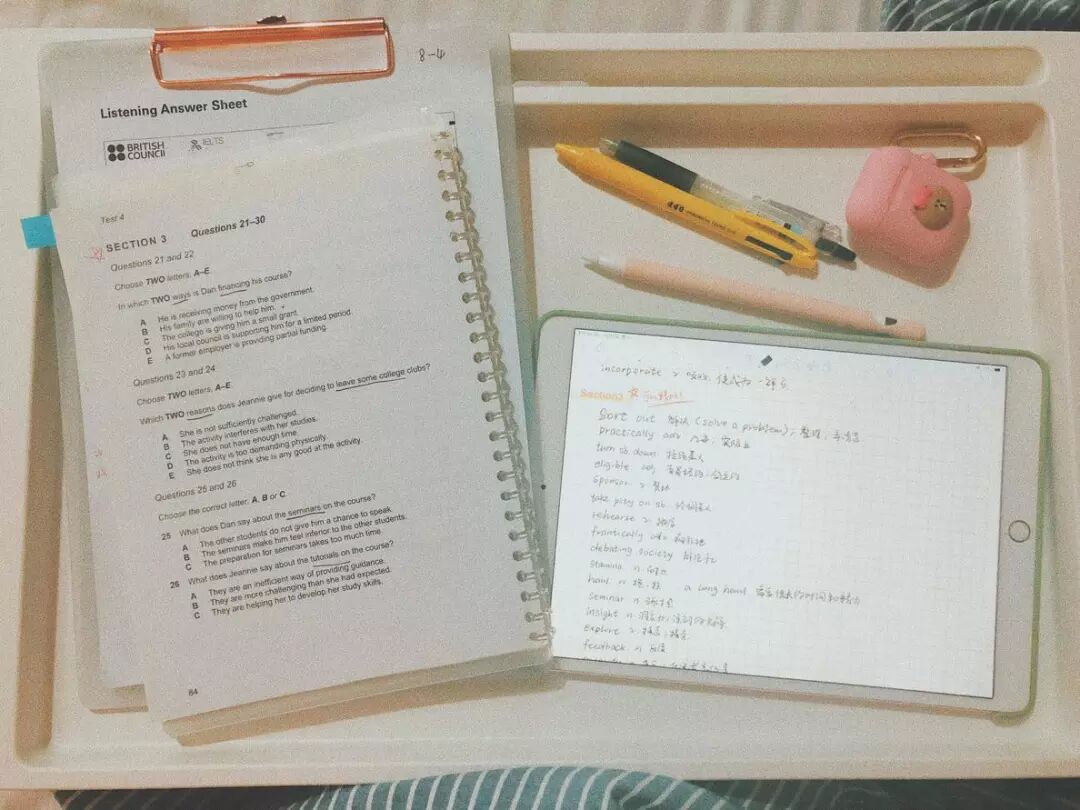 8-4
Listening Answer Sheet
BRITISH COUNCIL
IELTS
Test 4
SECTION 3 Questions 21–30
Questions 21 and 22
Choose TWO letters, A–E.
In which TWO ways is Dan financing his course?
A He is receiving money from the government.
B His family are willing to help him.
C The college is giving him a small grant.
D His local council is supporting him for a limited period.
E A former employer is providing partial funding.
Questions 23 and 24
Choose TWO letters, A–E.
Which TWO reasons does Jeannie give for deciding to leave some college clubs?
A She is not sufficiently challenged.
B The activity interferes with her studies.
C She does not have enough time.
D The activity is too demanding physically.
E She does not think she is any good at the activity.
Questions 25 and 26
Choose the correct letter, A, B or C.
25 What does Dan say about the seminars on the course?
A The other students do not give him a chance to speak.
B The seminars make him feel inferior to the other students.
C The preparation for seminars takes too much time.
26 What does Jeannie say about the tutorials on the course?
A They are an inefficient way of providing guidance.
B They are more challenging than she had expected.
C They are helping her to develop her study skills.
84
incorporate v
Section3
Sort out 解决 (solve a problem); 整理;
practically adv 几乎;
turn sb down 拒绝某人
eligible adj
sponsor v 赞助
take pity on sb
rehearse v 排练
frantically adv
debating society 辩论社
stamina n
haul n a long haul
seminar n
insight n
explore v
feedback n 反馈